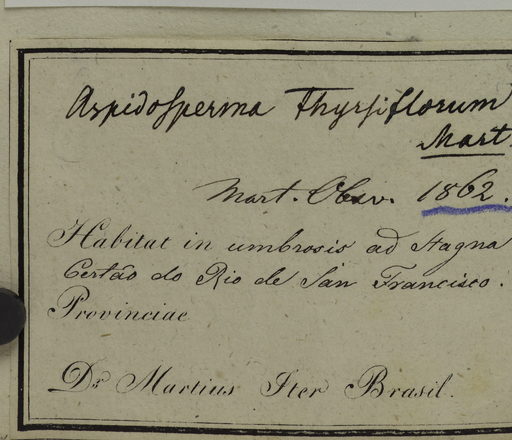 Aspidosperma Thyrsiflorum
Mart.
Mart. Obsv. 1862.
Habitat in umbrosis ad stagna
Certão do Rio de San Francisco.
Provinciae
Dr Martius Iter Brasil.